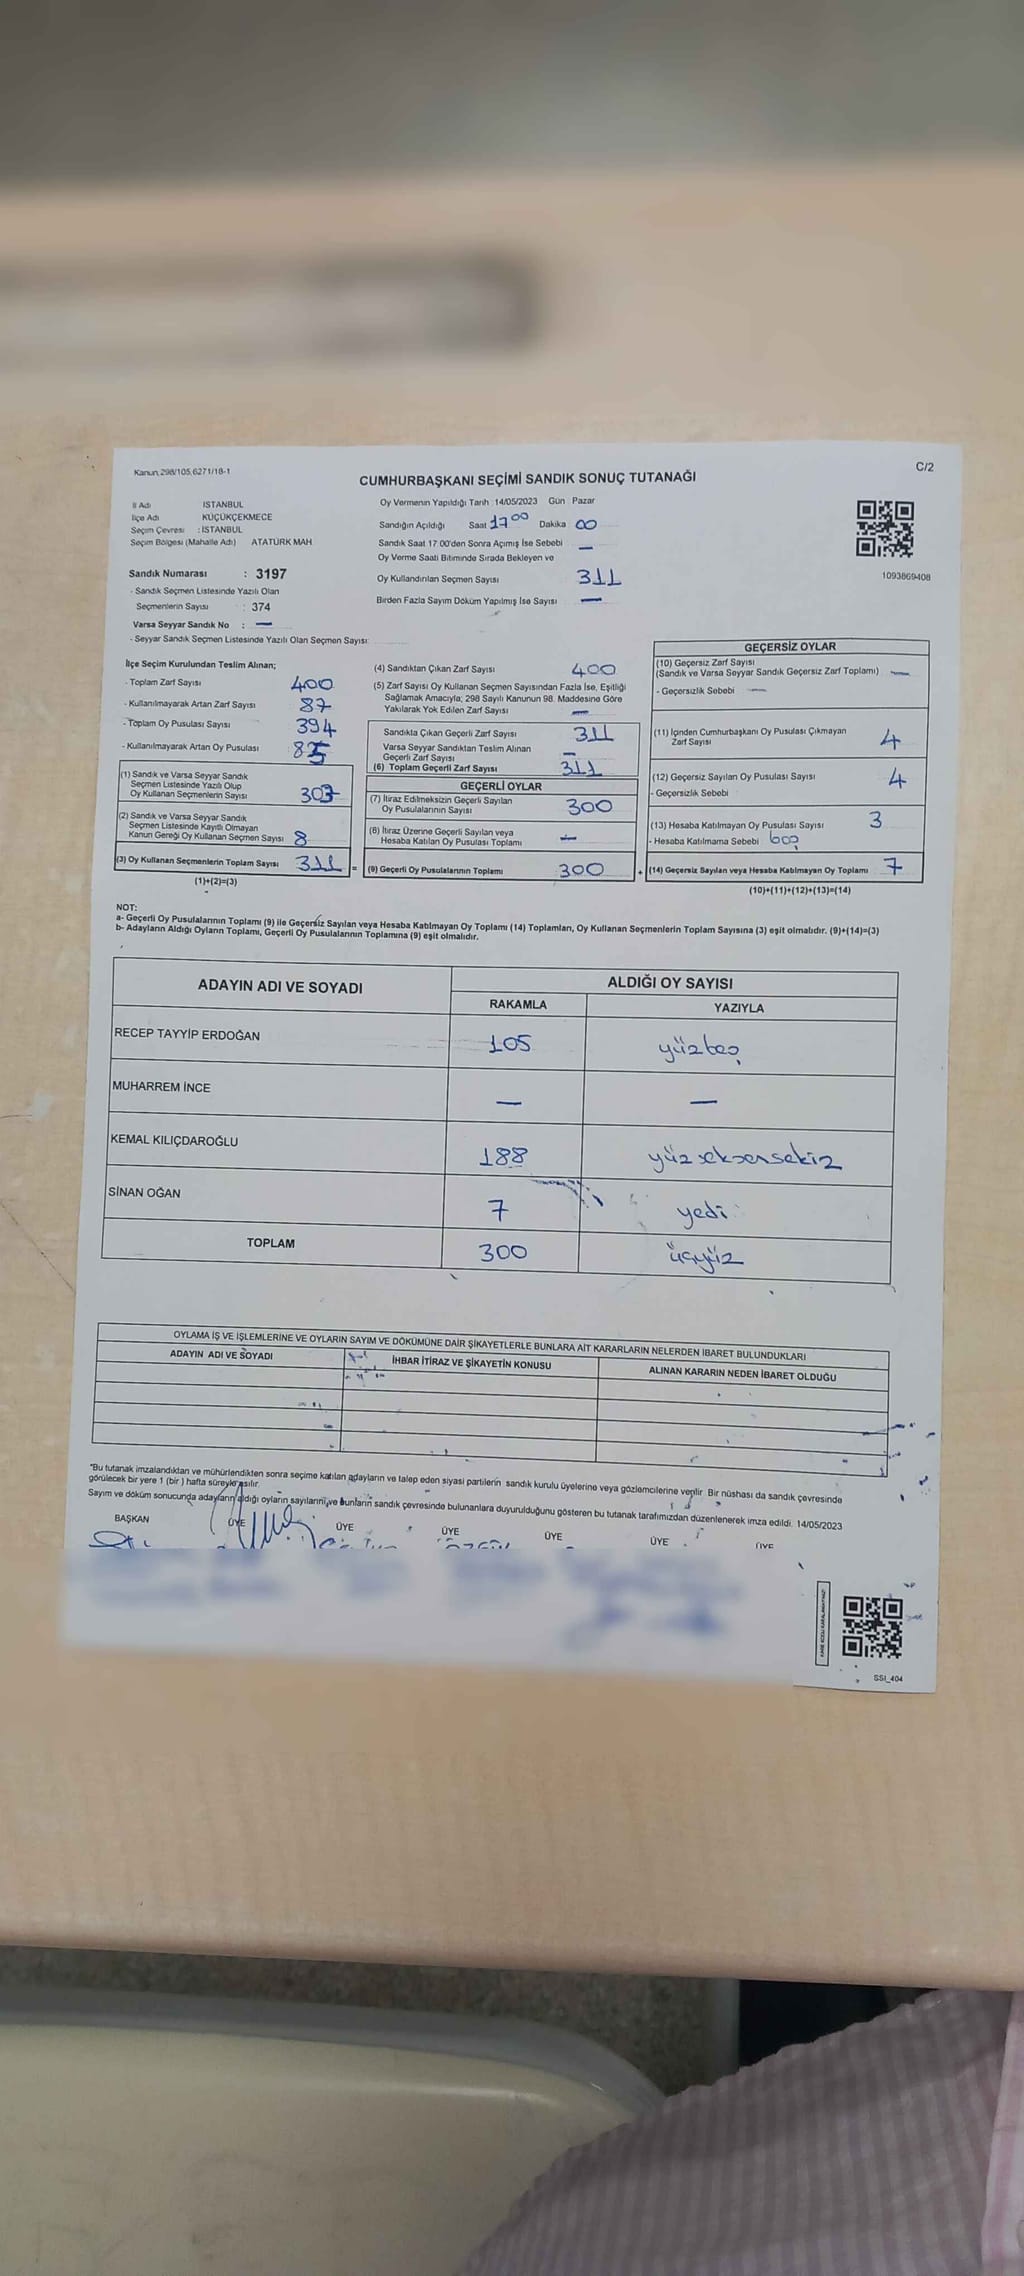 Kanun 298/105,6271/18-1
C/2
CUMHURBAŞKANI SEÇİMİ SANDIK SONUÇ TUTANAĞI
İl Adı İSTANBUL
İlçe Adı KÜÇÜKÇEKMECE
Seçim Çevresi : İSTANBUL
Seçim Bölgesi (Mahalle Adı) ATATÜRK MAH
Sandık Numarası : 3197
- Sandık Seçmen Listesinde Yazılı Olan
Seçmenlerin Sayısı : 374
Varsa Seyyar Sandık No : —
- Seyyar Sandık Seçmen Listesinde Yazılı Olan Seçmen Sayısı:
Oy Vermenin Yapıldığı Tarih : 14/05/2023 Gün : Pazar
Sandığın Açıldığı Saat 17 00 Dakika 00
Sandık Saat 17 00'den Sonra Açmış İse Sebebi —
Oy Verme Saati Bitiminde Sırada Bekleyen ve
Oy Kullandırılan Seçmen Sayısı 311
Birden Fazla Sayım Döküm Yapılmış İse Sayısı —
1093869408
İlçe Seçim Kurulundan Teslim Alınan;
- Toplam Zarf Sayısı 400
- Kullanılmayarak Artan Zarf Sayısı 87
- Toplam Oy Pusulası Sayısı 394
- Kullanılmayarak Artan Oy Pusulası
(1) Sandık ve Varsa Seyyar Sandık
Seçmen Listesinde Yazılı Olup
Oy Kullanan Seçmenlerin Sayısı 303
(2) Sandık ve Varsa Seyyar Sandık
Seçmen Listesinde Kayıtlı Olmayan
Kanun Gereği Oy Kullanan Seçmen Sayısı 8
(3) Oy Kullanan Seçmenlerin Toplam Sayısı 311 =
(1)+(2)=(3)
(4) Sandıktan Çıkan Zarf Sayısı 400
(5) Zarf Sayısı Oy Kullanan Seçmen Sayısından Fazla İse, Eşitliği
Sağlamak Amacıyla; 298 Sayılı Kanunun 98. Maddesine Göre
Yakılarak Yok Edilen Zarf Sayısı —
Sandıkta Çıkan Geçerli Zarf Sayısı 311
Varsa Seyyar Sandıktan Teslim Alınan
Geçerli Zarf Sayısı —
(6) Toplam Geçerli Zarf Sayısı 311
GEÇERLİ OYLAR
(7) İtiraz Edilmeksizin Geçerli Sayılan
Oy Pusulalarının Sayısı 300
(8) İtiraz Üzerine Geçerli Sayılan veya
Hesaba Katılan Oy Pusulası Toplamı —
(9) Geçerli Oy Pusulalarının Toplamı 300 +
GEÇERSİZ OYLAR
(10) Geçersiz Zarf Sayısı
(Sandık ve Varsa Seyyar Sandık Geçersiz Zarf Toplamı) —
- Geçersizlik Sebebi —
(11) İçinden Cumhurbaşkanı Oy Pusulası Çıkmayan
Zarf Sayısı 4
(12) Geçersiz Sayılan Oy Pusulası Sayısı 4
- Geçersizlik Sebebi
(13) Hesaba Katılmayan Oy Pusulası Sayısı 3
- Hesaba Katılmama Sebebi boş
(14) Geçersiz Sayılan veya Hesaba Katılmayan Oy Toplamı 7
(10)+(11)+(12)+(13)=(14)
NOT:
a- Geçerli Oy Pusulalarının Toplamı (9) ile Geçersiz Sayılan veya Hesaba Katılmayan Oy Toplamı (14) Toplamları, Oy Kullanan Seçmenlerin Toplam Sayısına (3) eşit olmalıdır. (9)+(14)=(3)
b- Adayların Aldığı Oyların Toplamı, Geçerli Oy Pusulalarının Toplamına (9) eşit olmalıdır.
ADAYIN ADI VE SOYADI ALDIĞI OY SAYISI
RAKAMLA YAZIYLA
RECEP TAYYİP ERDOĞAN 105 yüzbeş
MUHARREM İNCE — —
KEMAL KILIÇDAROĞLU 188 yüzseksensekiz
SİNAN OĞAN 7 yedi
TOPLAM 300 üçyüz
OYLAMA İŞ VE İŞLEMLERİNE VE OYLARIN SAYIM VE DÖKÜMÜNE DAİR ŞİKAYETLERLE BUNLARA AİT KARARLARIN NELERDEN İBARET BULUNDUKLARI
ADAYIN ADI VE SOYADI İHBAR İTİRAZ VE ŞİKAYETİN KONUSU ALINAN KARARIN NEDEN İBARET OLDUĞU
*Bu tutanak imzalandıktan ve mühürlendikten sonra seçime katılan adayların ve talep eden siyasi partilerin sandık kurulu üyelerine veya gözlemcilerine verilir Bir nüshası da sandık çevresinde
görülecek bir yere 1 (bir) hafta süreyle asılır
Sayım ve döküm sonucunda adayların aldığı oyların sayılarını ve bunların sandık çevresinde bulunanlara duyurulduğunu gösteren bu tutanak tarafımızdan düzenlenerek imza edildi. 14/05/2023
BAŞKAN ÜYE ÜYE ÜYE ÜYE ÜYE ÜYE
SSI_404